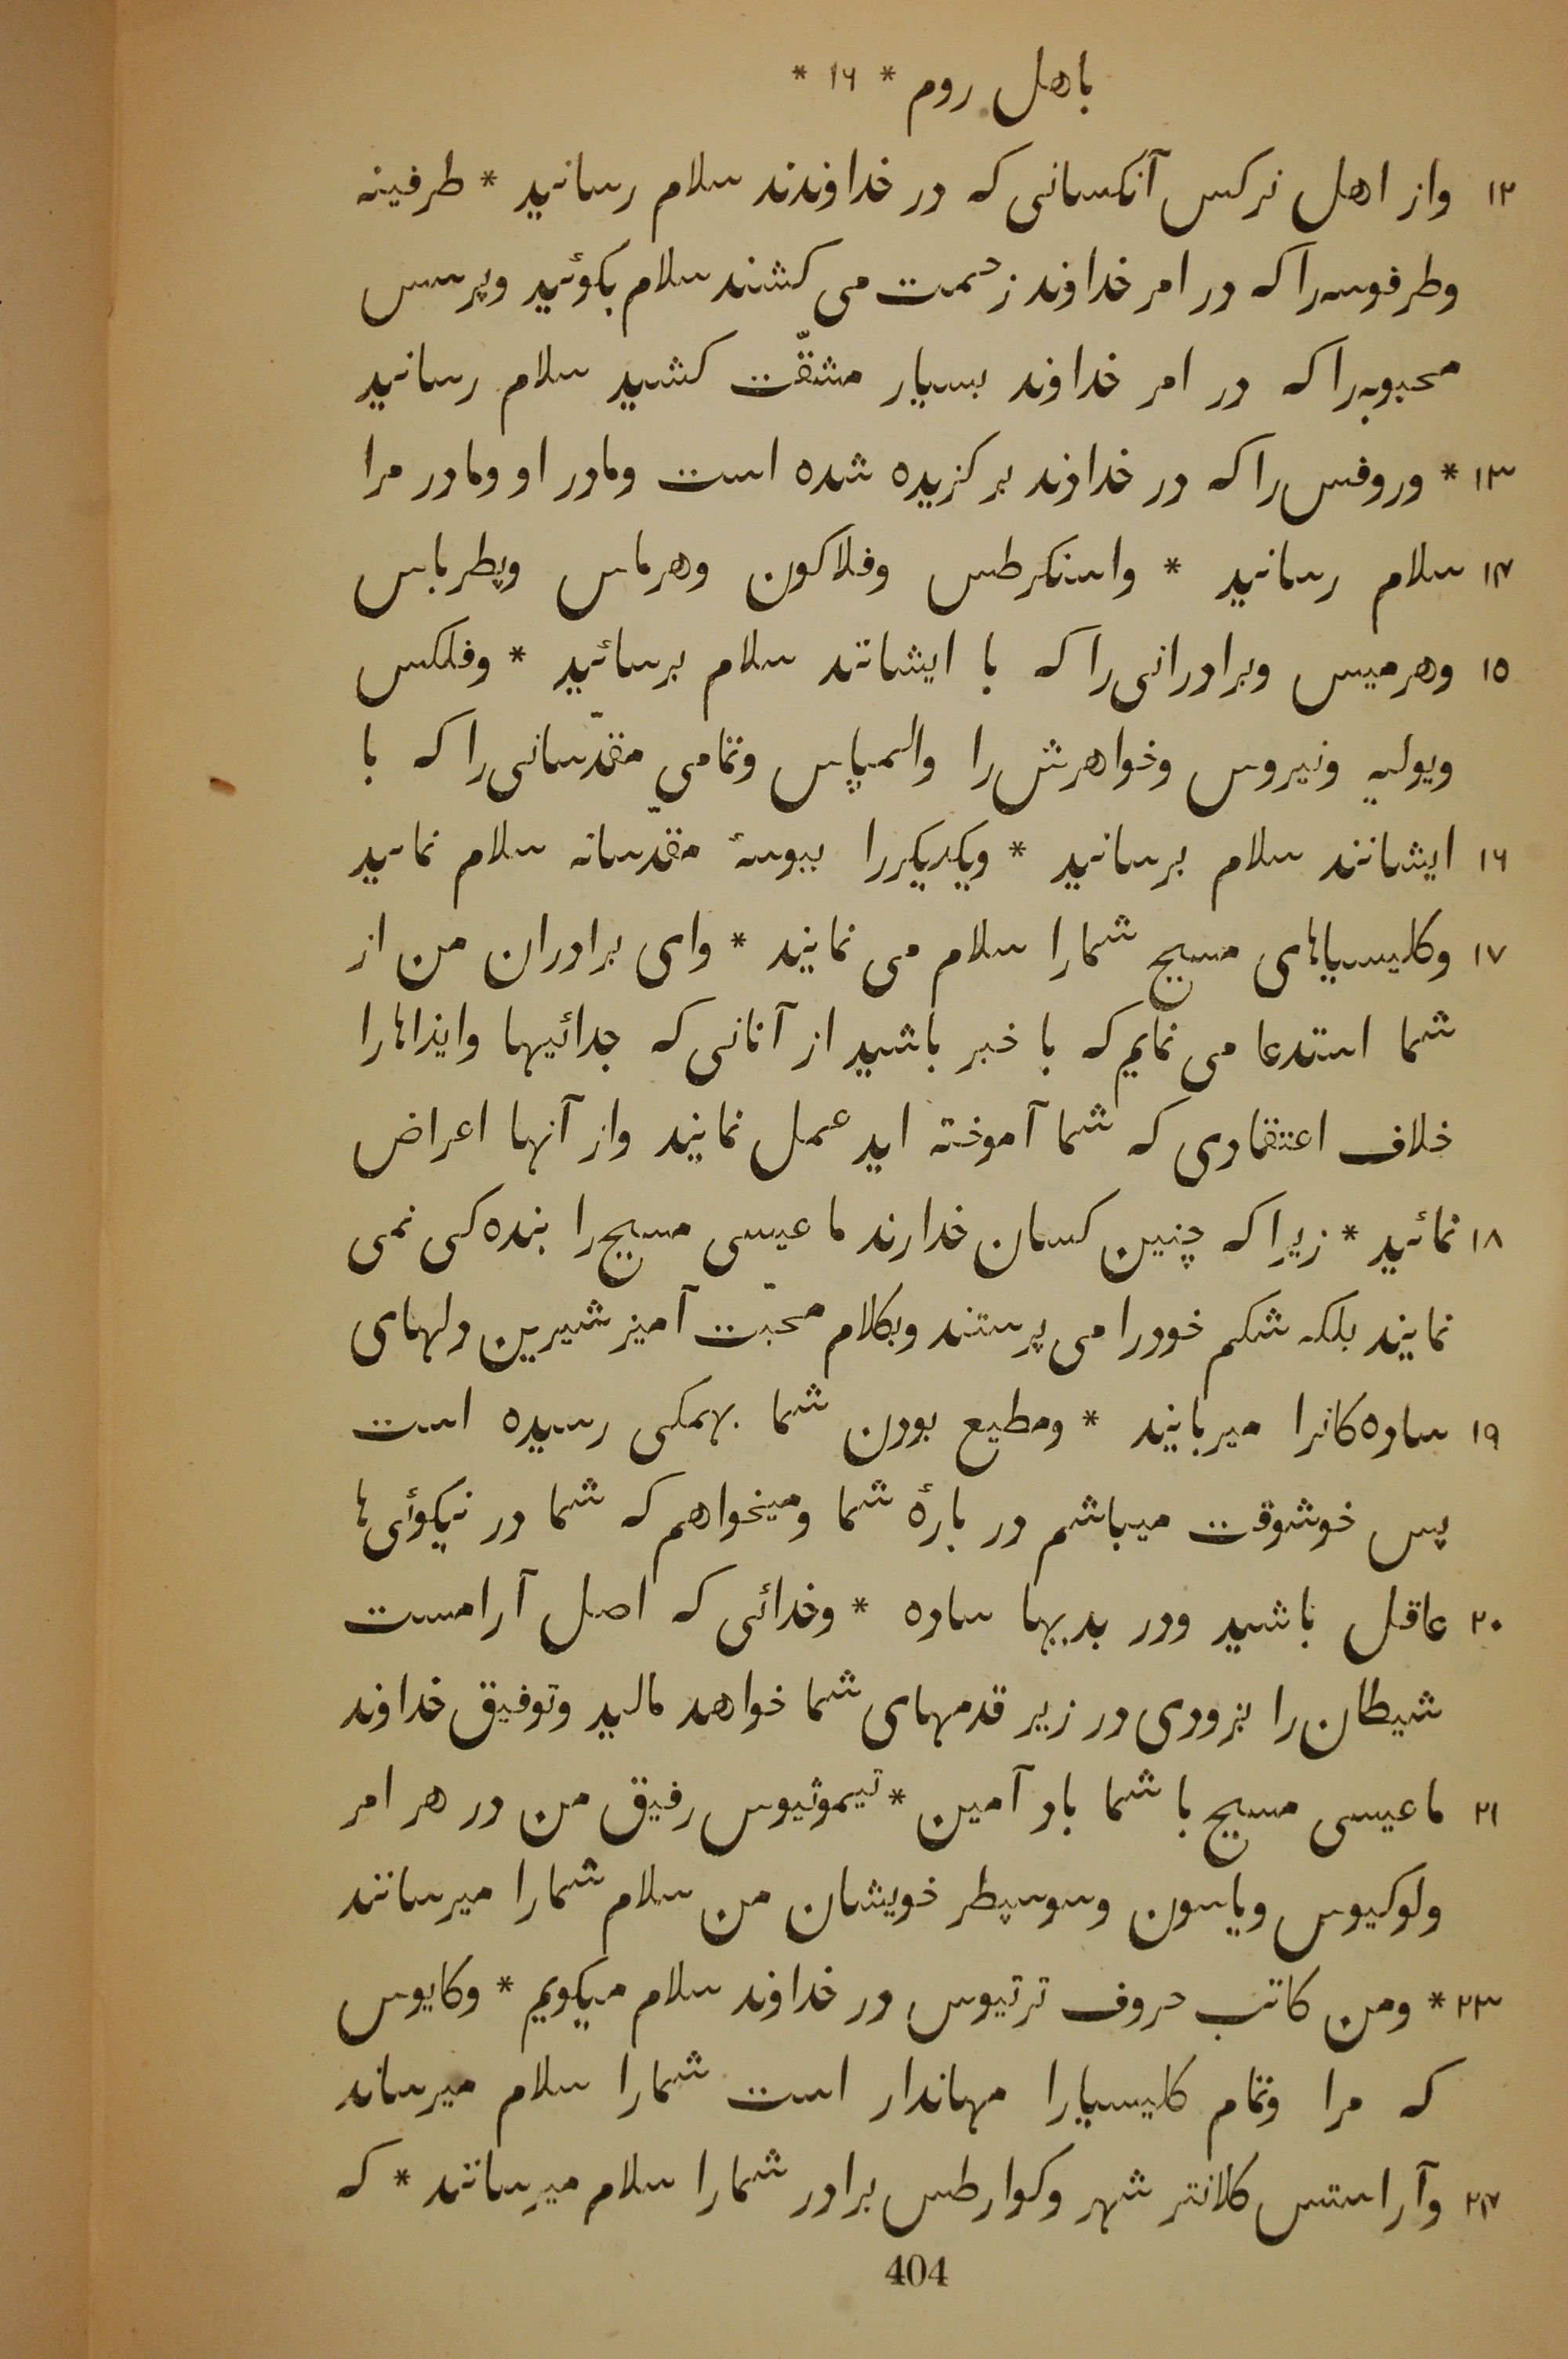 باهل روم * ١٦ *
١٢ واز اهل نركس آنكسانى كه در خداوندند سلام رسانيد * طرفينه
وطرفوسه‌را كه در امر خداوند زحمت مى كشند سلام بكوئيد وپرسس
محبوبه‌را كه در امر خداوند بسيار مشقّت كشيد سلام رسانيد
١٣ * وروفس‌را كه در خداوند بركزيده شده است ومادر او ومادر مرا
١۴ سلام رسانيد * واسنكرطس وفلاكون وهرماس وپطرباس
١٥ وهرميس وبرادرانى‌را كه با ايشانند سلام برسائيد * وفللكس
ويوليه ونيروس وخواهرش را والمپاس وتمامى مقدّسانى‌را كه با
١٦ ايشانند سلام برسانيد * ويكديكررا ببوسهٔ مقدّسانه سلام نمائيد
١٧ وكليسياهاى مسيح شمارا سلام مى نمايند * واى برادران من از
شما استدعا مى نمايم كه با خبر باشيد از آنانى كه جدائيها وايذاهارا
خلاف اعتقادى كه شما آموخته ايد عمل نمايند واز آنها اعراض
١٨ نمائيد * زيرا كه چنين كسان خداوند ما عيسى مسيح‌را بنده‌كى نمى
نمايند بلكه شكم خودرا مى پرستند وبكلام محبّت آميز شيرين دلهاى
١٩ ساده‌كانرا ميربايند * ومطيع بودن شما بهمكى رسيده است
پس خوشوقت ميباشم در بارهٔ شما وميخواهم كه شما در نيكوئى‌ها
٢٠ عاقل باشيد ودر بديها ساده * وخدائى كه اصل آرامست
شيطان‌را بزودى در زير قدمهاى شما خواهد ماليد وتوفيق خداوند
٢١ ما عيسى مسيح با شما باد آمين * تيموثيوس رفيق من در هر امر
ولوكيوس وياسون وسوسپطر خويشان من سلام شمارا ميرسانند
٢٣ * ومن كاتب حروف ترتيوس در خداوند سلام ميكويم * وكايوس
كه مرا وتمام كليسيارا مهاندار است شمارا سلام ميرساند
٢۴ وآراستس كلانتر شهر وكوارطس برادر شمارا سلام ميرسانند * كه
404